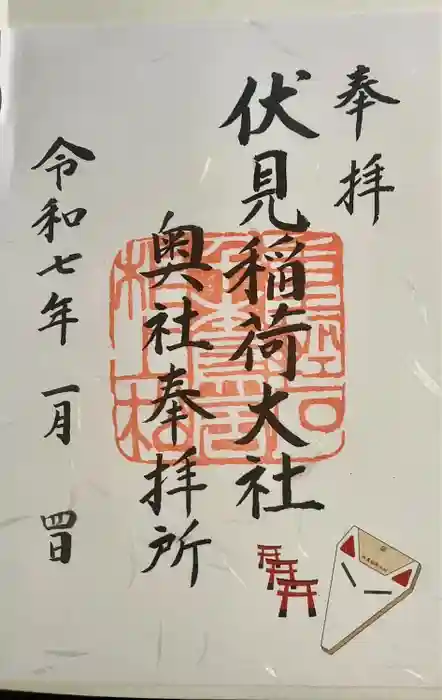 奉拝
伏見稲荷大社
奥社奉拝所
令和七年一月四日